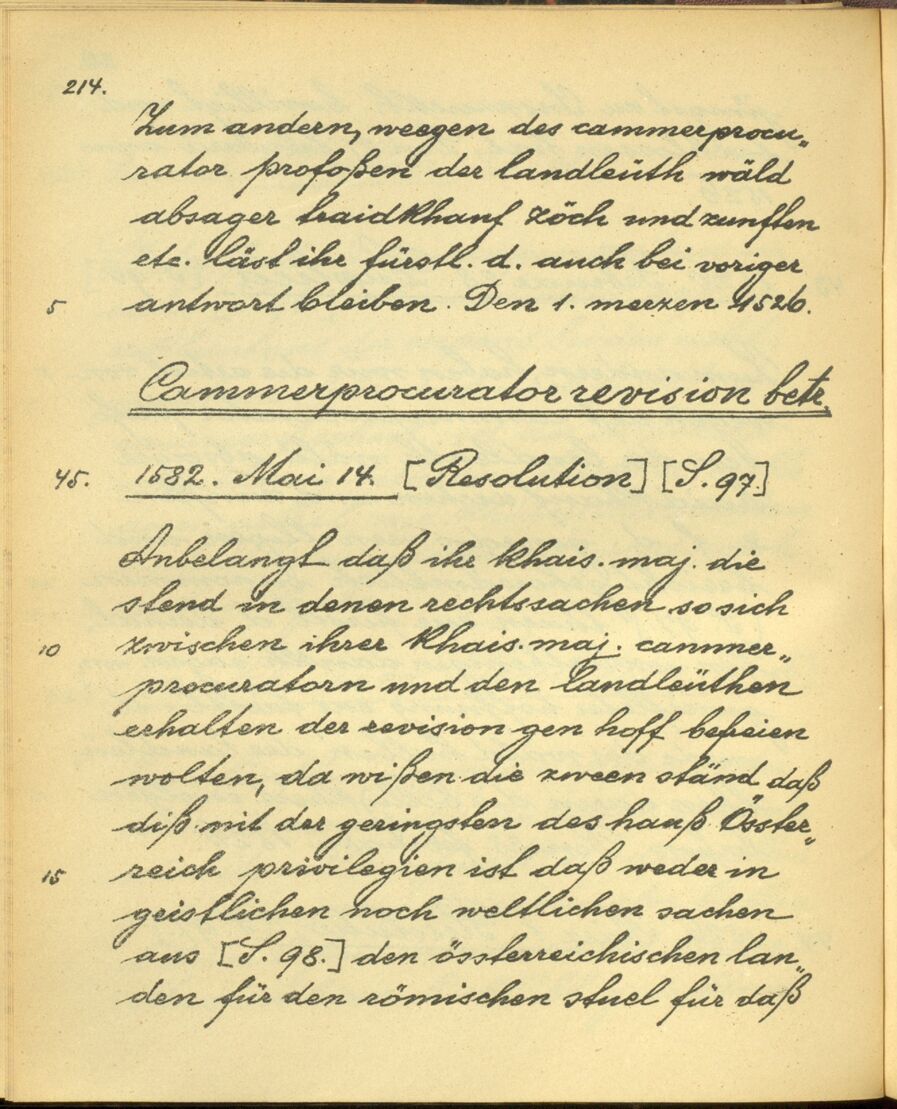 214.
Zum andern, weegen des cammerprocu„
rator profoßen der landleüth wäld
absager traidkhauf zöch und zunften
etc. läst ihr fürstl. d. auch bei voriger
5 antwort bleiben. Den 1. merzen 1526.
Cammerprocurator revision betr.
45. 1582. Mai 14. [Resolution] [S. 97]
Anbelangt daß ihr khais. maj. die
stend in denen rechtssachen so sich
10 zwischen ihrer khais. maj. cammer„
procuratorn und den landleüthen
erhalten der revision gen hoff befreien
wolten, da wißen die zween ständ daß
diß mit der geringsten des haußÖsster„
15 reich privilegien ist daß weder in
geistlichen noch weltlichen sachen
aus [S. 98.] den össterreichischen lan„
den für den römischen stuel für daß